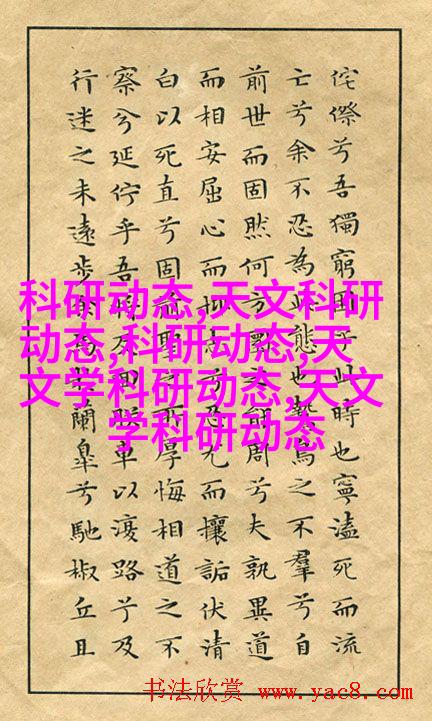 侘傺兮吾獨窮困于此時也寧溘死而流
亡兮余不忍為此態也鷙鳥之不羣兮自
前世而固然何方圜之能周兮夫孰異道
而相安屈心而抑志兮忍尤而攘詬伏清
白以死直兮固前聖之所厚悔相道之不
察兮延佇乎吾將反回朕車以復路兮及
行迷之未遠步余馬於蘭臯兮馳椒丘且
科研动态,天文科研
动态,科研动态,天
文学科研动态,天文
学科研动态
书法欣赏 www.yac8.com